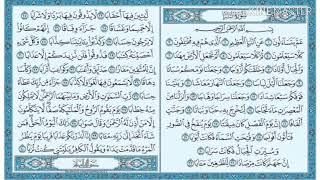 سورة النبإ
بسم الله الرحمن الرحيم
عم يتساءلون عن النبإ العظيم الذي هم فيه مختلفون
كلا سيعلمون ثم كلا سيعلمون ألم نجعل الأرض مهدا
والجبال أوتادا وخلقنكم أزوجا وجعلنا نومكم سباتا
وجعلنا اليل لباسا وجعلنا النهار معاشا وبنينا فوقكم
سبعا شدادا وجعلنا سراجا وهاجا وأنزلنا من
المعصرت ماء ثجاجا لنخرج به حبا ونباتا وجنت
ألفافا إن يوم الفصل كان ميقتا يوم ينفخ في الصور
فتأتون أفواجا وفتحت السماء فكانت أبوبا
وسيرت الجبال فكانت سرابا
إن جهنم كانت مرصادا للطغين مئابا
لبثين فيها أحقابا لا يذوقون فيها بردا ولا شرابا
إلا حميما وغساقا جزاء وفاقا إنهم كانوا
لا يرجون حسابا وكذبوا بئايتنا كذابا وكل شيء
أحصينه كتبا فذوقوا فلن نزيدكم إلا عذابا
إن للمتقين مفازا حدائق وأعنبا وكواعب أترابا
وكأسا دهاقا لا يسمعون فيها لغوا ولا كذبا جزاء من ربك
عطاء حسابا رب السموت والأرض وما بينهما الرحمن لا يملكون
منه خطابا يوم يقوم الروح والملئكة صفا لا يتكلمون
إلا من أذن له الرحمن وقال صوابا ذلك اليوم الحق فمن
شاء اتخذ إلى ربه مئابا إنا أنذرنكم عذابا قريبا يوم ينظر
المرء ما قدمت يداه ويقول الكافر يليتني كنت تربا